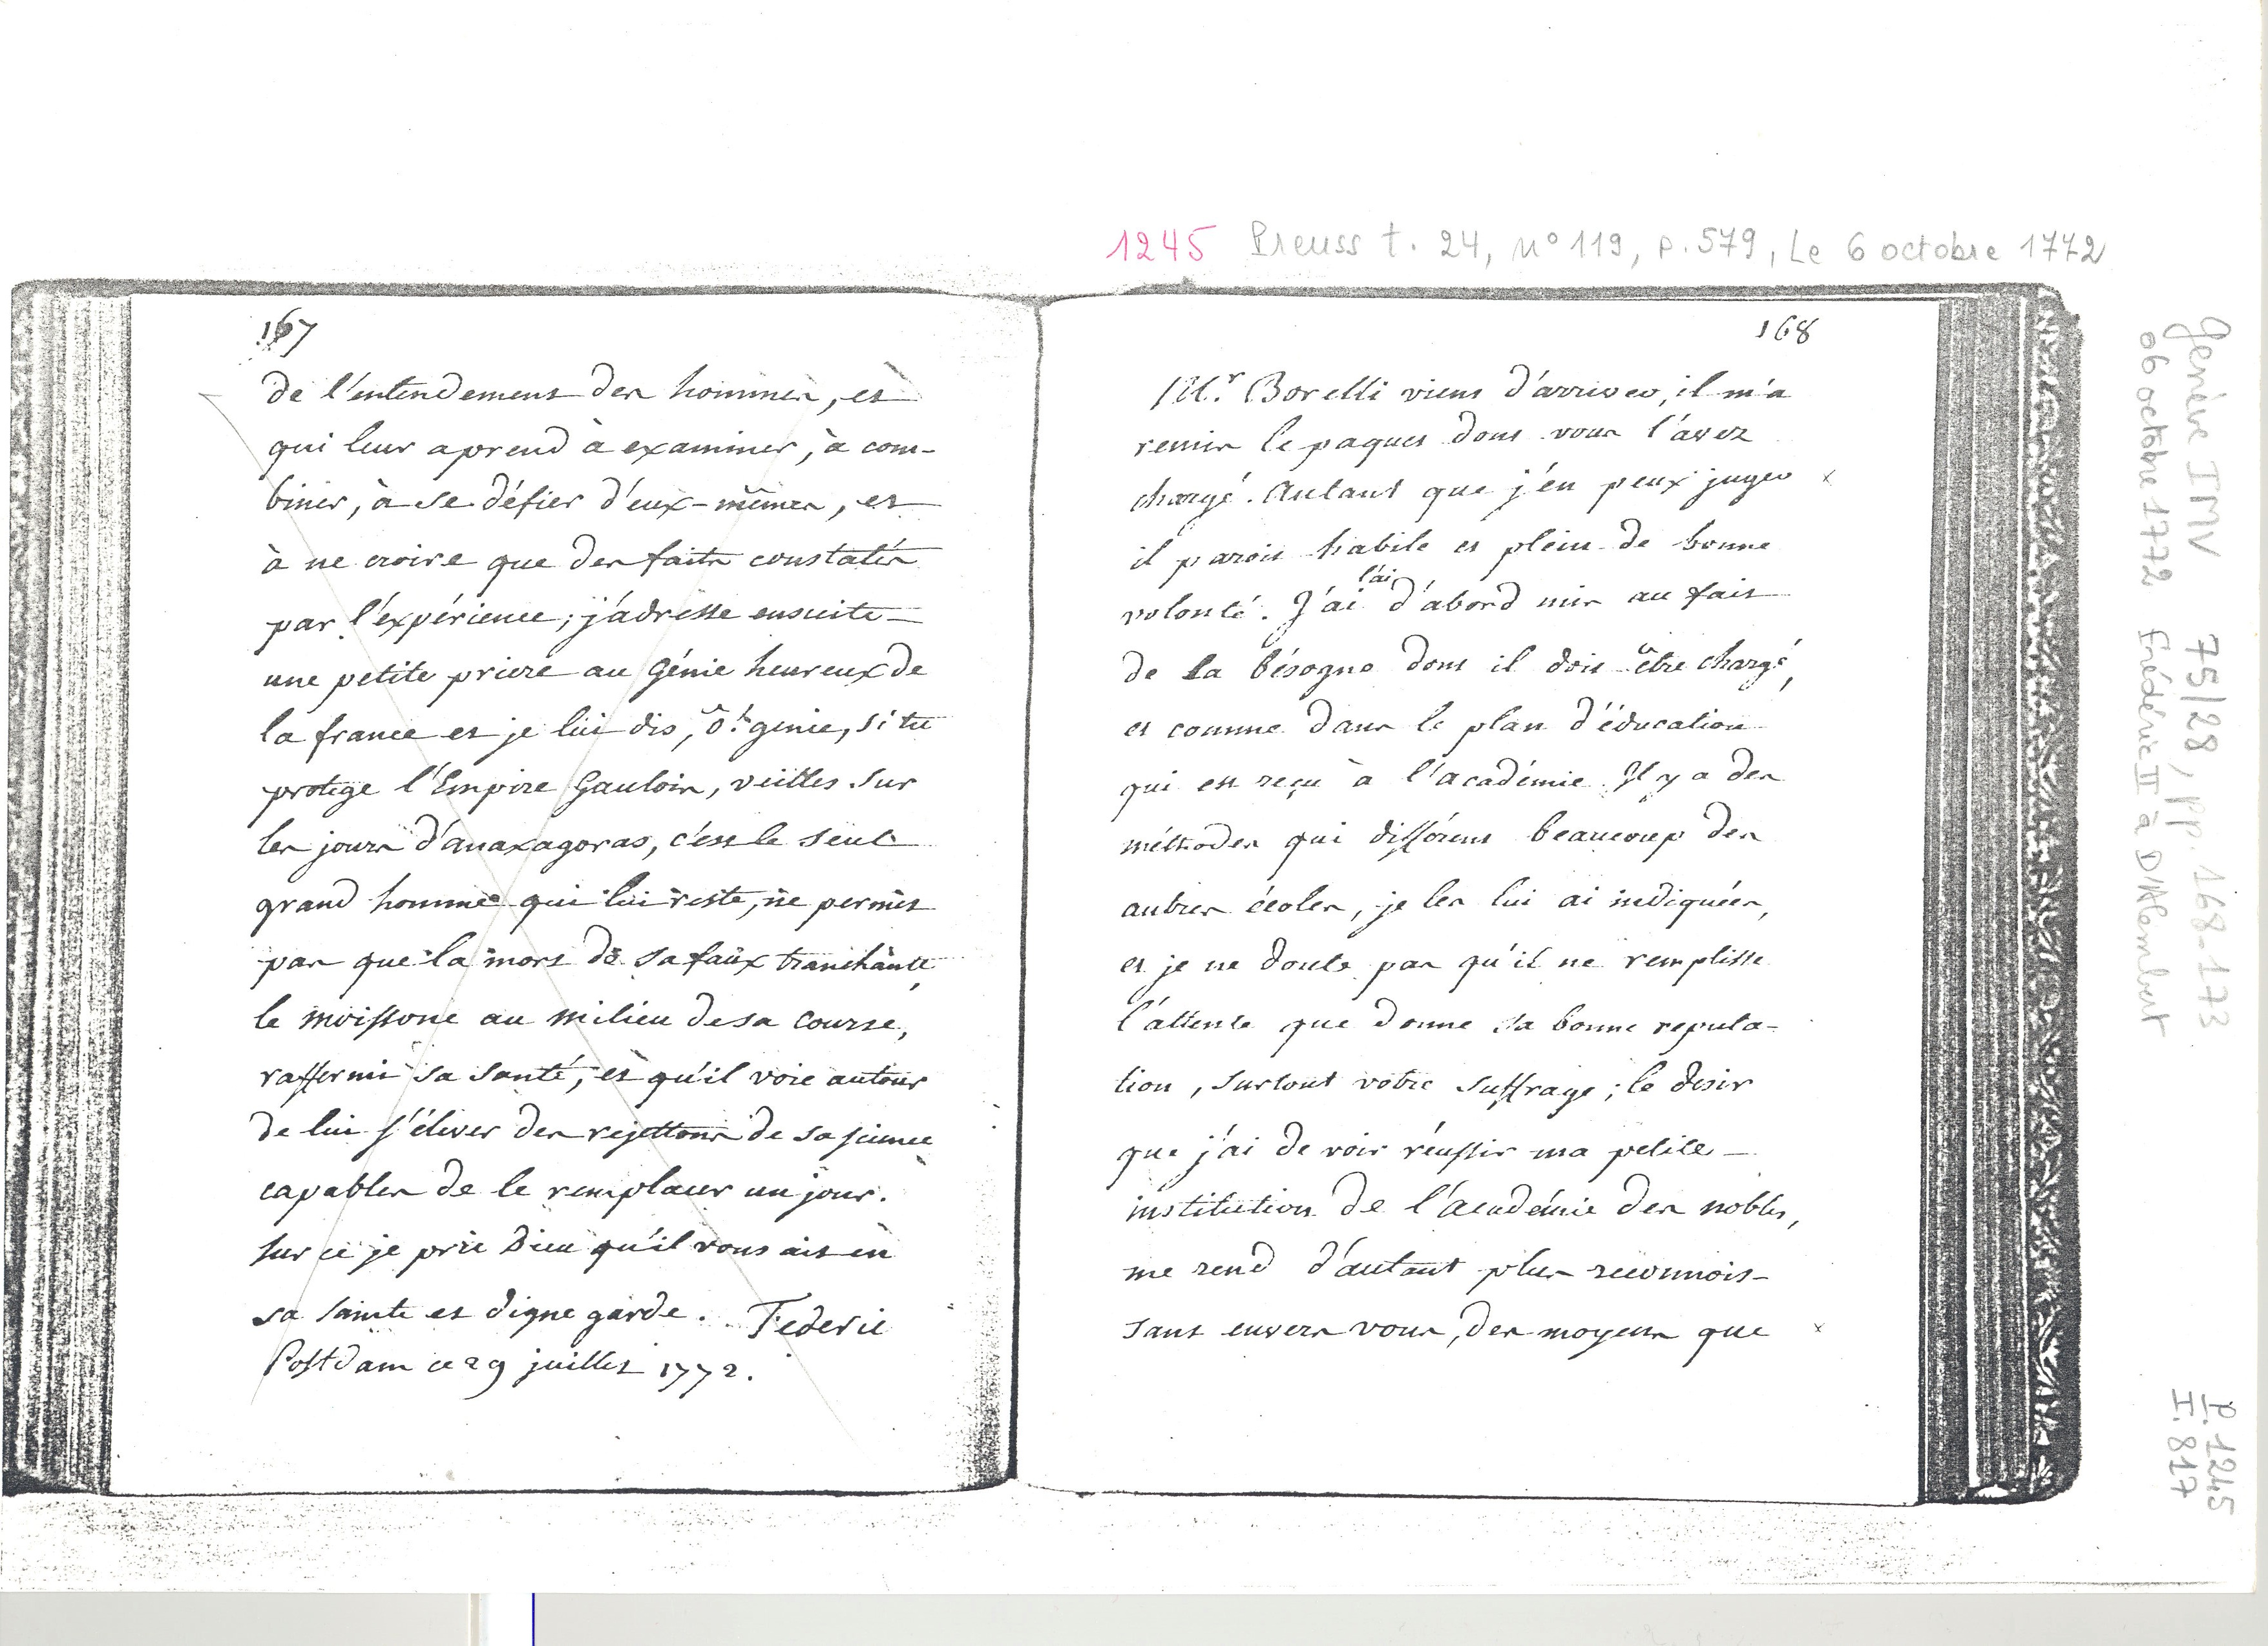 1245 Preuss t. 24, n° 119, p. 579, Le 6 octobre 1772
167
de l'entendement des hommes, et
qui leur aprend à examiner, à com-
biner, à se défier d'eux-mêmes, et
à ne croire que des faits constatés
par l'expérience; j'adresse ensuite
une petite priere au Génie heureux de
la france et je lui dis, ô! genie, si tu
protege l'Empire Gaulois, veilles sur
les jours d'anaxagoras, c'est le seul
grand homme qui lui reste, ne permet
pas que la mort de sa faux tranchante,
le moissone au milieu de sa course,
raffermi sa santé, et qu'il voie autour
de lui s'élever des rejettons de sa science
capables de le remplacer un jour.
sur ce je prie Dieu qu'il vous ait en
sa sainte et digne garde. Federic
Postdam ce 29 juillet 1772.
168
Mr. Borelli vient d'arriver, il m'a
remis le paquet dont vous l'avez
chargé. Autant que j'en peux juger x
il paroit habile et plein de bonne
l'ai
volonté. J'ai d'abord mis au fait
de la bésogne dont il doit être chargé,
et comme dans le plan d'éducation
qui est reçu à l'académie Il y a des
méthodes qui différent beaucoup des
autres écoles, je les lui ai indiquées,
et je ne doute pas qu'il ne remplisse
l'attente que donne sa bonne reputa-
tion, surtout votre suffrage; le desir
que j'ai de voir réussir ma petite
institution de l'académie des nobles,
me rend d'autant plus reconnois-
sant envers vous, des moyens que x
Genève IMV 75/28, pp. 168-173
06 octobre 1772 Frédéric II à D'Alembert
P. 1245
I. 817